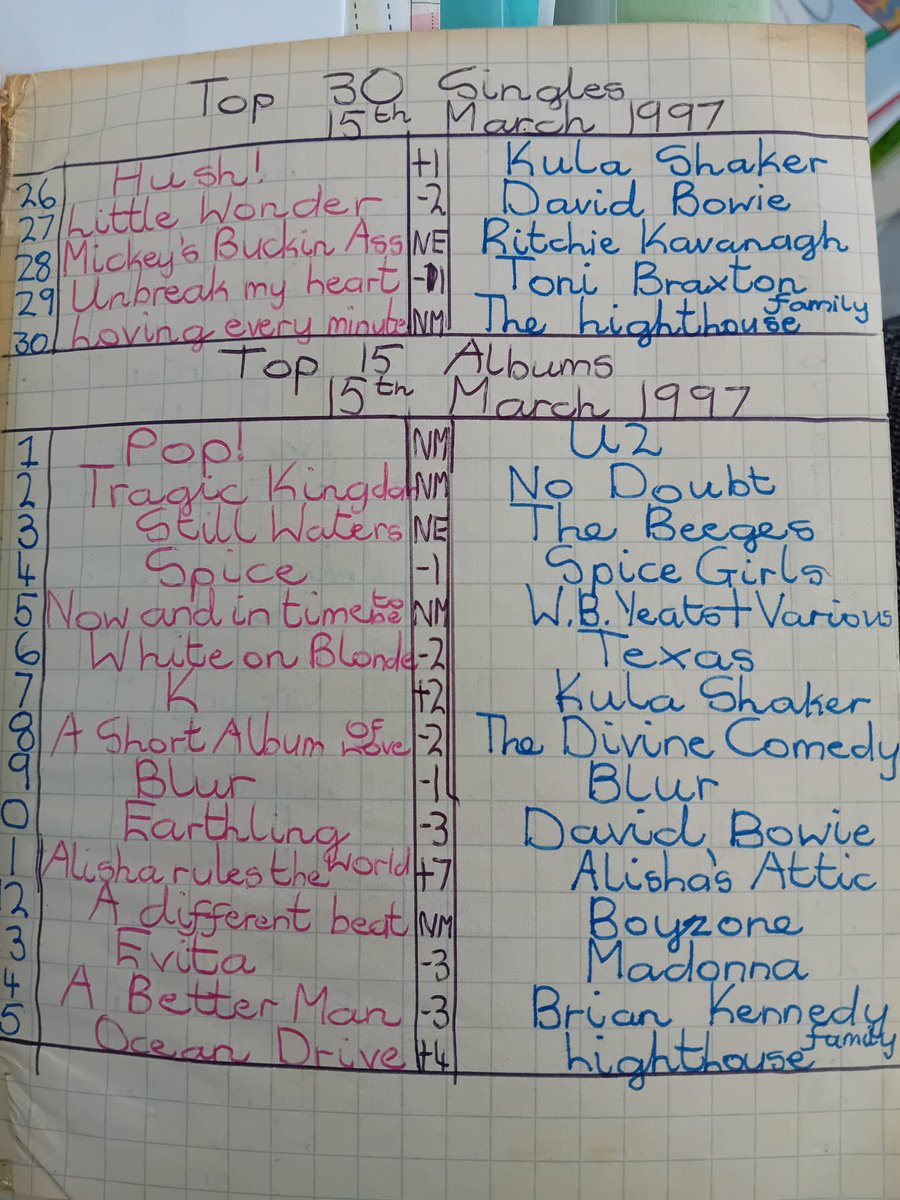 Top 30 Singles
15th March 1997
26 Hush! +1 Kula Shaker
27 Little Wonder -2 David Bowie
28 Mickey's Buckin Ass NE Ritchie Kavanagh
29 Unbreak my heart -1 Toni Braxton
30 Loving every minute NM The Lighthouse family
Top 15 Albums
15th March 1997
1 Pop! NM U2
2 Tragic Kingdom NM No Doubt
3 Still Waters NE The Beeges
4 Spice -1 Spice Girls
5 Now and in time to be NM W.B. Yeats + Various
6 White on Blonde -2 Texas
7 K +2 Kula Shaker
8 A Short Album of Love -2 The Divine Comedy
9 Blur -1 Blur
0 Earthling -3 David Bowie
1 Alisha rules the world +7 Alisha's Attic
2 A different beat NM Boyzone
3 Evita -3 Madonna
4 A Better Man -3 Brian Kennedy
5 Ocean Drive +4 Lighthouse family